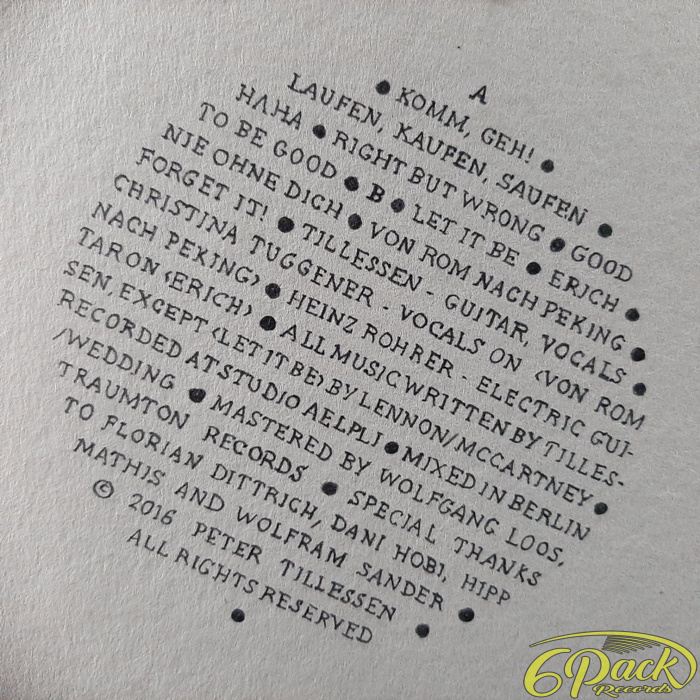 A
• KOMM, GEH! •
LAUFEN, KAUFEN, SAUFEN •
HAHA • RIGHT BUT WRONG • GOOD
TO BE GOOD • B • LET IT BE • ERICH •
NIE OHNE DICH • VON ROM NACH PEKING •
FORGET IT! • TILLESSEN - GUITAR, VOCALS •
CHRISTINA TUGGENER - VOCALS ON ‹VON ROM
NACH PEKING› • HEINZ ROHRER - ELECTRIC GUI-
TAR ON ‹ERICH› • ALL MUSIC WRITTEN BY TILLES-
SEN, EXCEPT ‹LET IT BE› BY LENNON/MCCARTNEY •
RECORDED AT STUDIO AELPLI • MIXED IN BERLIN
/WEDDING • MASTERED BY WOLFGANG LOOS,
TRAUMTON RECORDS • SPECIAL THANKS
TO FLORIAN DITTRICH, DANI HOBI, HIPP
MATHIS AND WOLFRAM SANDER •
© 2016 PETER TILLESSEN •
ALL RIGHTS RESERVED
•
6Pack
Records